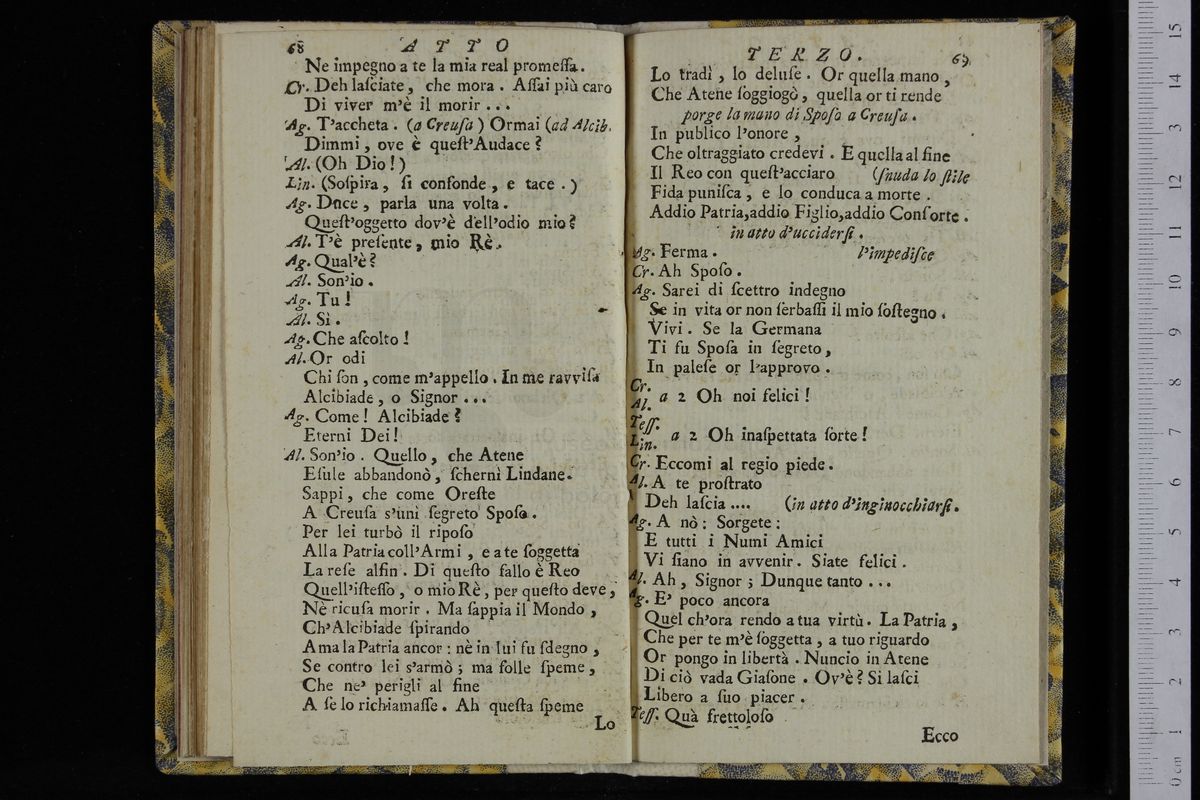 68 A T T O
Ne impegno a te la mia real promeſſa.
Cr. Deh laſciate, che mora. Aſſai più caro
Di viver m'è il morir...
Ag. T'accheta. (a Creuſa) Ormai (ad Alcib.
Dimmi, ove è queſt'Audace?
Al. (Oh Dio!)
Lin. (Soſpira, ſi confonde, e tace.)
Ag. Duce, parla una volta.
Queſt'oggetto dov'è dell'odio mio?
Al. T'è preſente, mio Rè.
Ag. Qual'è?
Al. Son'io.
Ag. Tu!
Al. Sì.
Ag. Che aſcolto!
Al. Or odi
Chi ſon, come m'appello. In me ravviſa
Alcibiade, o Signor...
Ag. Come! Alcibiade?
Eterni Dei!
Al. Son'io. Quello, che Atene
Eſule abbandonò, ſchernì Lindane.
Sappi, che come Oreſte
A Creuſa s'unì ſegreto Spoſo.
Per lei turbò il ripoſo
Alla Patria coll'Armi, e a te ſoggetta
La reſe alfin. Di queſto fallo è Reo
Quell'iſteſſo, o mio Rè, per queſto deve,
Nè ricuſa morir. Ma ſappia il Mondo,
Ch'Alcibiade ſpirando
Ama la Patria ancor: nè in lui fu ſdegno,
Se contro lei s'armò; ma folle ſpeme,
Che ne' perigli al fine
A ſe lo richiamaſſe. Ah queſta ſpeme
Lo
T E R Z O. 69
Lo tradì, lo deluſe. Or quella mano,
Che Atene ſoggiogò, quella or ti rende
porge la mano di Spoſo a Creuſa.
In publico l'onore,
Che oltraggiato credevi. E quella al fine
Il Reo con queſt'acciaro (ſnuda lo ſtile
Fida puniſca, e lo conduca a morte.
Addio Patria, addio Figlio, addio Conſorte.
in atto d'ucciderſi.
Ag. Ferma. l'impediſce
Cr. Ah Spoſo.
Ag. Sarei di ſcettro indegno
Se in vita or non ſerbaſſi il mio ſoſtegno.
Vivi. Se la Germana
Ti fu Spoſa in ſegreto,
In paleſe or l'approvo.
Cr.
Al. a 2 Oh noi felici!
Teſſ.
Lin. a 2 Oh inaſpettata ſorte!
Cr. Eccomi al regio piede.
Al. A te proſtrato
Deh laſcia.... (in atto d'inginocchiarſi.
Ag. A nò: Sorgete:
E tutti i Numi Amici
Vi ſiano in avvenir. Siate felici.
Al. Ah, Signor; Dunque tanto...
Ag. E' poco ancora
Quel ch'ora rendo a tua virtù. La Patria,
Che per te m'è ſoggetta, a tuo riguardo
Or pongo in libertà. Nuncio in Atene
Di ciò vada Giaſone. Ov'è? Si laſci
Libero a ſuo piacer.
Teſſ. Quà frettoloſo
Ecco
15
14
13
12
11
10
9
8
7
6
5
4
3
2
1
0 cm